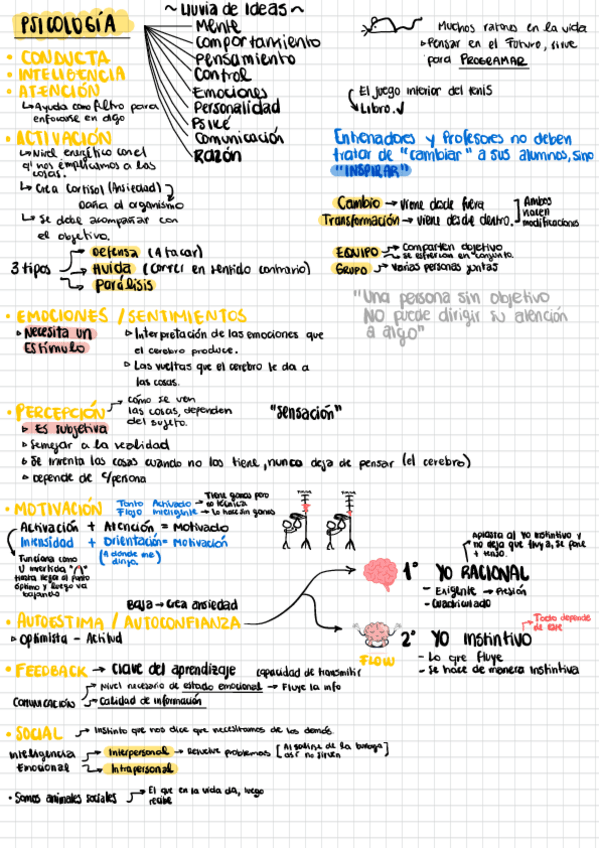 PSICOLOGÍA
~ Lluvia de Ideas ~
Mente
Comportamiento
Pensamiento
Control
Emociones
Personalidad
Psike
Comunicación
Razón
Muchos ratones en la vida
Pensar en el futuro, sirve
para PROGRAMAR
El juego interior del tenis
Libro. ✓
• CONDUCTA
• INTELIGENCIA
• ATENCIÓN
↳ Ayuda como filtro para
enfocarse en algo
• ACTIVACIÓN
↳ Nivel energético con el
q' nos implicamos a las
cosas.
↳ Crea Cortisol (Ansiedad)
Daña al organismo
↳ Se debe acompañar con
el objetivo.
3 tipos
Defensa (Atacar)
Huida (Correr en sentido contrario)
Parálisis
Entrenadores y Profesores no deben
tratar de "cambiar" a sus alumnos, sino
"INSPIRAR"
Cambio → Viene desde fuera
Transformación → Viene desde dentro.
Ambos
hacen
modificaciones
EQUIPO → Comparten objetivo
→ se esfuerzan en conjunto.
GRUPO → Varias personas juntas
"Una persona sin objetivo
NO puede dirigir su atención
a algo"
• EMOCIONES / SENTIMIENTOS
Necesita un
Estímulo
Interpretación de las emociones que
el cerebro produce.
Las vueltas que el cerebro le da a
las cosas.
• PERCEPCIÓN
como se ven
las cosas, dependen
del sujeto.
"Sensación"
Es subjetiva
Semejar a la realidad
Se inventa las cosas cuando no las tiene, nunca deja de pensar (el cerebro)
Depende de c/persona
• MOTIVACIÓN
Tonto Activado →
Tiene ganas pero
Flojo Inteligente →
Activación + Atención = Motivado
Intensidad + Orientación = Motivación
(A dónde me
dirijo.)
Funciona como
U invertida "∩"
hasta llegar al punto
óptimo y luego va
bajando
Aplasta al yo instintivo y
no deja que fluya, se pone
+ tenso.
1° YO RACIONAL
- Exigente → Presión
- Cuadriculado
Baja → Crea ansiedad
• AUTOESTIMA / AUTOCONFIANZA
Optimista - Actitud
Todo depende
de este
FLOW
2° YO Instintivo
- Lo que fluye
- Se hace de manera instintiva
• FEEDBACK → Clave del aprendizaje
capacidad de transmitir
COMUNICACIÓN
Nivel necesario de estado emocional → Fluye la info
Calidad de información
• SOCIAL → Instinto que nos dice que necesitamos de los demás.
Inteligencia
Emocional
Interpersonal → Resuelve problemas
Intrapersonal
• Somos animales sociales
El que en la vida da, luego
recibe